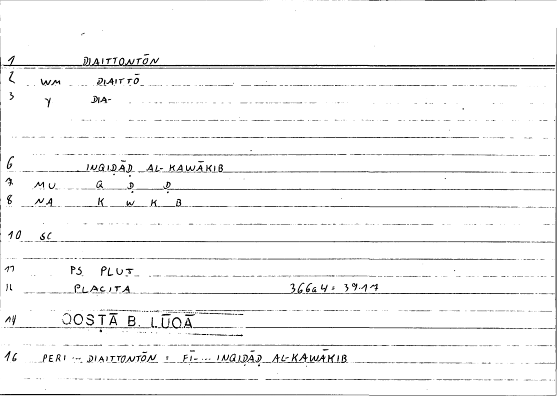 1 DIAITTONTŌN
2 WM DIAITTŌ
3 Y DIA-
6 INQIḌĀḌ AL-KAWĀKIB
7 MU Q Ḍ Ḍ
8 NA K W K B
10 SC
11 PS. PLUT
12 PLACITA 366a4 = 39.17
14 QOSṬĀ B. LŪQĀ
16 PERI ... DIAITTONTŌN : FĪ- ... INQIḌĀḌ AL-KAWĀKIB